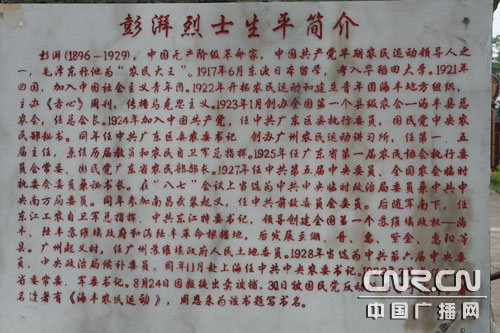 彭湃烈士生平简介
彭湃(1896-1929),中国无产阶级革命家,中国共产党早期农民运动领导人之
一,毛泽东称他为“农民大王”。1917年6月东渡日本留学,考入早稻田大学。1921年
回国,加入中国社会主义青年团。1922年开始农民运动和建立青年团海丰地方组织,
主办《赤心》周刊,传播马克思主义。1923年1月创办全国第一个县级农会—海丰县总
农会,任总会长。1924年加入中国共产党,任中共广东区委执行委员,国民党中央农
民部秘书。同年任中共广东区委农委书记 创办广州农民运动讲习所,任第一、五
届主任,兼任历届教员和农民自卫军总指挥。1925年任广东省第一届农民协会执行委
员会常委、国民党广东省农民部部长。1927年任中共第五届中央委员、全国农会临时
执委会委员兼秘书长。在“八七”会议上当选为中共中央临时政治局委员兼中共中
央南方局委员。同年参加南昌武装起义,任中共前敌委员会委员。后随军南下,任
东江工农自卫军总指挥、中共东江特委书记,领导创建全国第一个苏维埃政权—海
丰、陆丰苏维埃政府和海陆丰革命根据地,后发展至潮、普、惠、紫金、惠阳等
县。广州起义时,任广州苏维埃政府人民土地委员。1928年当选为中共第六届中央委
员、中央政治局候补委员。同年11月赴上海任中共中央农委书记。
省委常委、军委书记。8月24日因叛徒出卖被捕,30日被国民党反动
名遗著有《海丰农民运动》,周恩来为该书题写书名。
CNR.CN
中国广播网